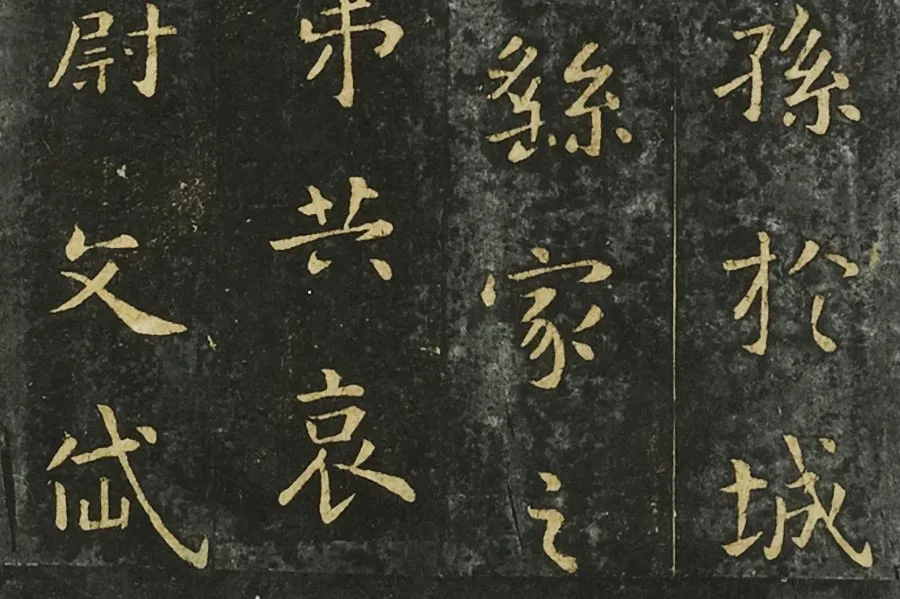 孫於城
繇家之
弟共哀
尉文岱